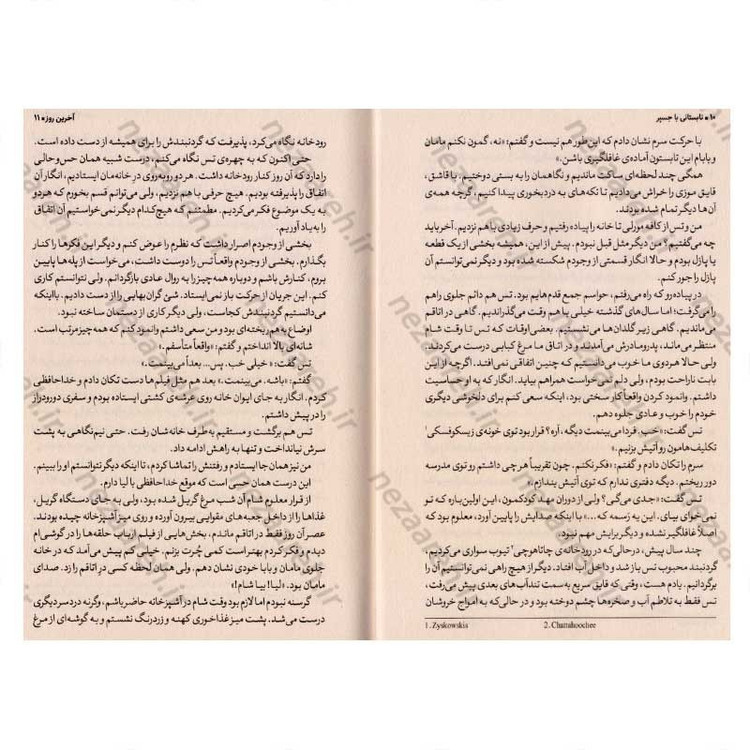 ۱۰ • تابستانی با جسپر
با حرکت سرم نشان دادم که این‌طور هم نیست و گفتم: «نه، گمون نکنم مامان
و بابام این تابستون آماده‌ی غافلگیری باشن.»
همگی چند لحظه‌ای ساکت ماندیم و نگاهمان را به بستنی دوختیم. با قاشق،
قایق موزی را خراش می‌دادیم تا تکه‌های به دردبخوری پیدا کنیم، گرچه همه‌ی
آن‌ها دیگر تمام شده بودند.
من و تس از کافه مورلی تا خانه را پیاده رفتیم و حرف زیادی با هم نزدیم. آخر باید
چه می‌گفتیم؟ من دیگر مثل قبل نبودم. پیش از این، همیشه بخشی از یک قطعه
یا پازل بودم و حالا انگار قسمتی از وجودم شکسته شده بود و دیگر نمی‌توانستم آن
پازل را جور کنم.
در پیاده‌رو که راه می‌رفتم، حواسم جمع قدم‌هایم بود. تس هم دائم جلوی راهم
را می‌گرفت؛ اما سال‌های گذشته خیلی با هم وقت می‌گذراندیم. گاهی در اتاقم
می‌ماندیم. گاهی زیر گلدان‌ها می‌نشستیم. بعضی اوقات که تس تا وقت شام
منتظر می‌ماند، پدرومادرش می‌آمدند و در اتاق ما مرغ کبابی درست می‌کردند.
ولی حالا هردوی ما خوب می‌دانستیم که چنین اتفاقی نمی‌افتد. اگرچه از این
بابت ناراحت بودم، ولی دلم نمی‌خواست همراهم بیاید. انگار که به او حساسیت
داشتم. وانمود کردن واقعاً کار سختی بود، اینکه سعی کنم برای دلخوشی دیگری
خودم را خوب و عادی جلوه دهم.
تس گفت: «خب، فردا می‌بینمت دیگه، آره؟ قرار بود توی خونه‌ی زیسکوفسکی¹
تکلیف‌هامون رو آتیش بزنیم.»
سرم را تکان دادم و گفتم: «فکر نکنم. چون تقریباً هر چی داشتم رو توی مدرسه
دور ریختم. دیگه دفتری ندارم که توی آتیش بندازم.»
تس گفت: «جدی می‌گی؟ ولی از دوران مهد کودکمون، این اولین‌باره که تو
نمی‌خوای بیای. این یه رسمه که...» با اینکه صدایش را پایین آورد، معلوم بود که
اصلاً غافلگیر نشده و دیگر برایش مهم نبود.
چند سال پیش، درحالی‌که در رودخانه‌ی چاتاهوچی² تیوب سواری می‌کردیم،
گردنبند محبوب تس باز شد و داخل آب افتاد. دیگر از هیچ راهی نمی‌توانستیم آن را
برگردانیم. یادم هست، وقتی که قایق سریع به‌سمت تندآب‌های بعدی پیش می‌رفت،
تس فقط به تلاطم آب و صخره‌ها چشم دوخته بود و در حالی‌که به امواج خروشان
1. Zyskowskis 2. Chattahoochee
آخرین روز • ۱۱
رودخانه نگاه می‌کرد، پذیرفت که گردنبندش را برای همیشه از دست داده است.
حتی اکنون که به چهره‌ی تس نگاه می‌کنم، درست شبیه همان حس‌وحالی
را دارد که آن روز کنار رودخانه داشت. هر دو روبه‌روی در خانه‌مان ایستادیم، انگار آن
اتفاق را پذیرفته بودیم. هیچ حرفی با هم نزدیم. ولی می‌توانم قسم بخورم که هردو
به یک موضوع فکر می‌کردیم. مطمئنم که هیچ‌کدام دیگر نمی‌خواستیم آن اتفاق
را به یاد آوریم.
بخشی از وجودم اصرار داشت که نظرم را عوض کنم و دیگر این فکرها را کنار
بگذارم. بخشی از وجودم واقعاً تس را دوست داشت، می‌خواست از پله‌ها پایین
بروم، کنارش باشم و دوباره همه‌چیز را به روال عادی بازگردانم. ولی نتوانستم کاری
کنم. این جریان از حرکت باز نمی‌ایستاد. شیء گران‌بهایی را از دست دادیم. بااینکه
می‌دانستیم گردنبندش کجاست، ولی دیگر کاری از دستمان ساخته نبود.
اوضاع به هم ریخته‌ای بود و من سعی داشتم وانمود کنم که همه چیز مرتب است.
شانه‌ای بالا انداختم و گفتم: «واقعاً متأسفم.»
تس گفت: «خیلی خب. پس... بعداً می‌بینمت.»
گفتم: «باشه. می‌بینمت.» بعد هم مثل فیلم‌ها دست تکان دادم و خداحافظی
کردم. انگار به جای ایوان خانه روی عرشه‌ی کشتی ایستاده بودم و سفری دورودراز
را در پیش داشتم.
تس هم برگشت و مستقیم به‌طرف خانه‌شان رفت. حتی نیم‌نگاهی به پشت
سرش نیانداخت و تنها به راهش ادامه داد.
من نیز همان جا ایستادم و رفتنش را تماشا کردم، تا اینکه دیگر نتوانستم او را ببینم.
این درست همان حسی است که موقع خداحافظی با لیا دارم.
از قرار معلوم شام آن شب مرغ گریل شده بود، ولی به جای دستگاه گریل،
غذاها را از داخل جعبه‌های مقوایی بیرون آورده و روی میز آشپزخانه چیده بودند.
عصر آن روز فقط در اتاقم ماندم، بخش‌هایی از فیلم ارباب حلقه‌ها را در گوشی‌ام
دیدم و فکر کردم بهتر است کمی چُرت بزنم. خیلی کم پیش می‌آمد که در خانه
جلوی مامان و بابا خودی نشان دهم. ولی همان لحظه کسی در اتاقم را زد. صدای
مامان بود. «لیا! بیا شام!»
گرسنه نبودم اما لازم بود وقت شام در آشپزخانه حاضر باشم، وگرنه دردسر دیگری
درست می‌شد. پشت میز غذاخوری کهنه و زردرنگ نشستم و به گوشه‌ای از مرغ
nezaareh.ir